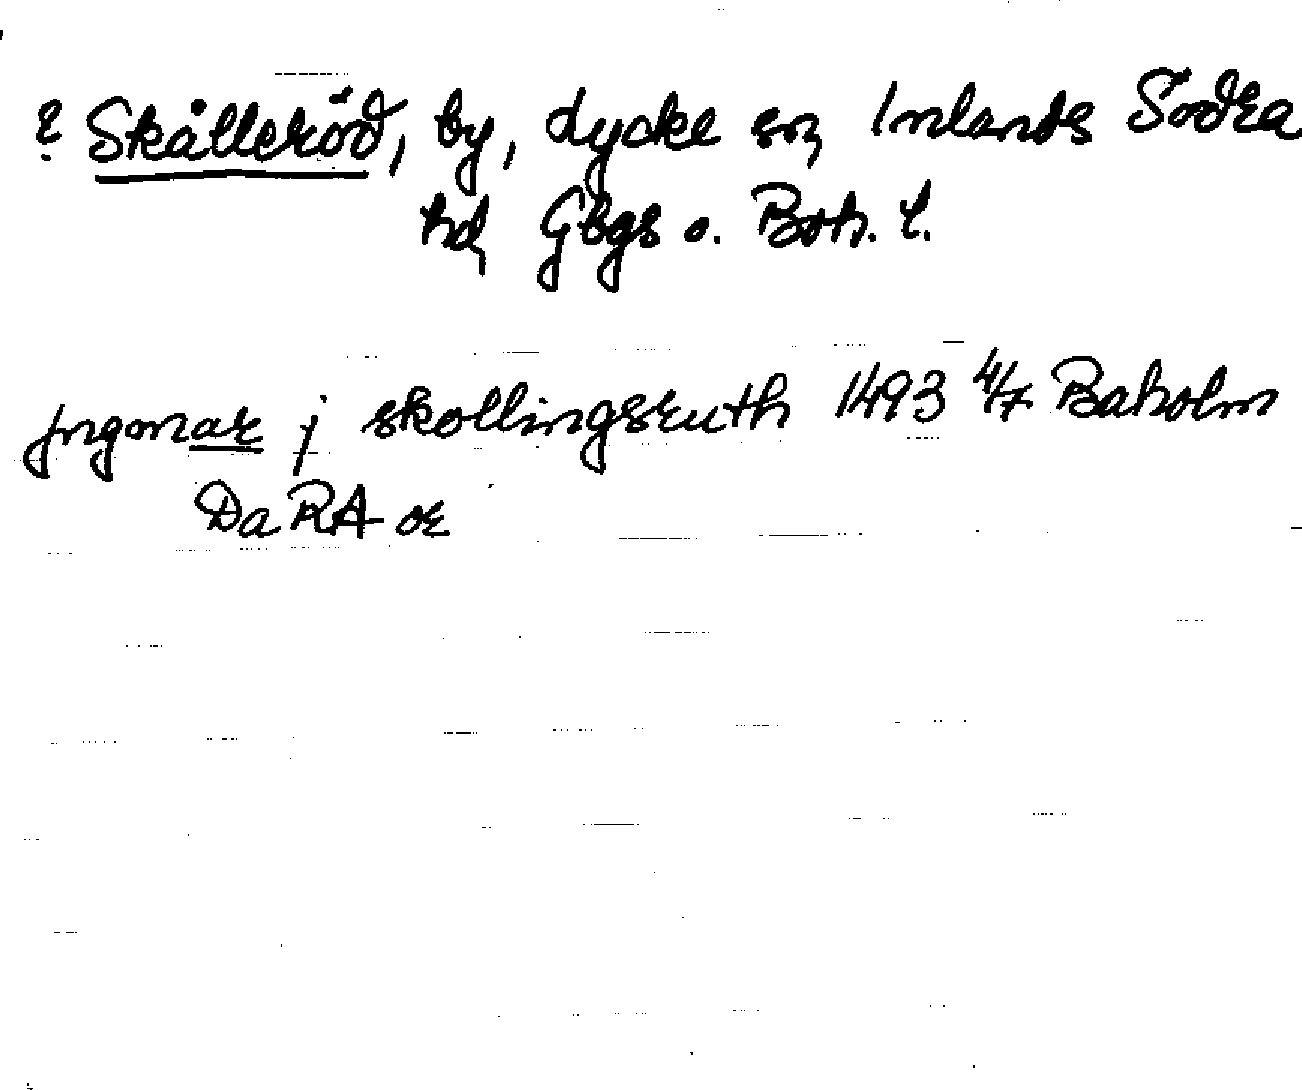 ? Skålleröd, by, Lycke sn, Inlands Södra
hd, Gbgs o. Boh. l.
jngemar j skollingsruth 1493 4/7 Baholm
Da RA or